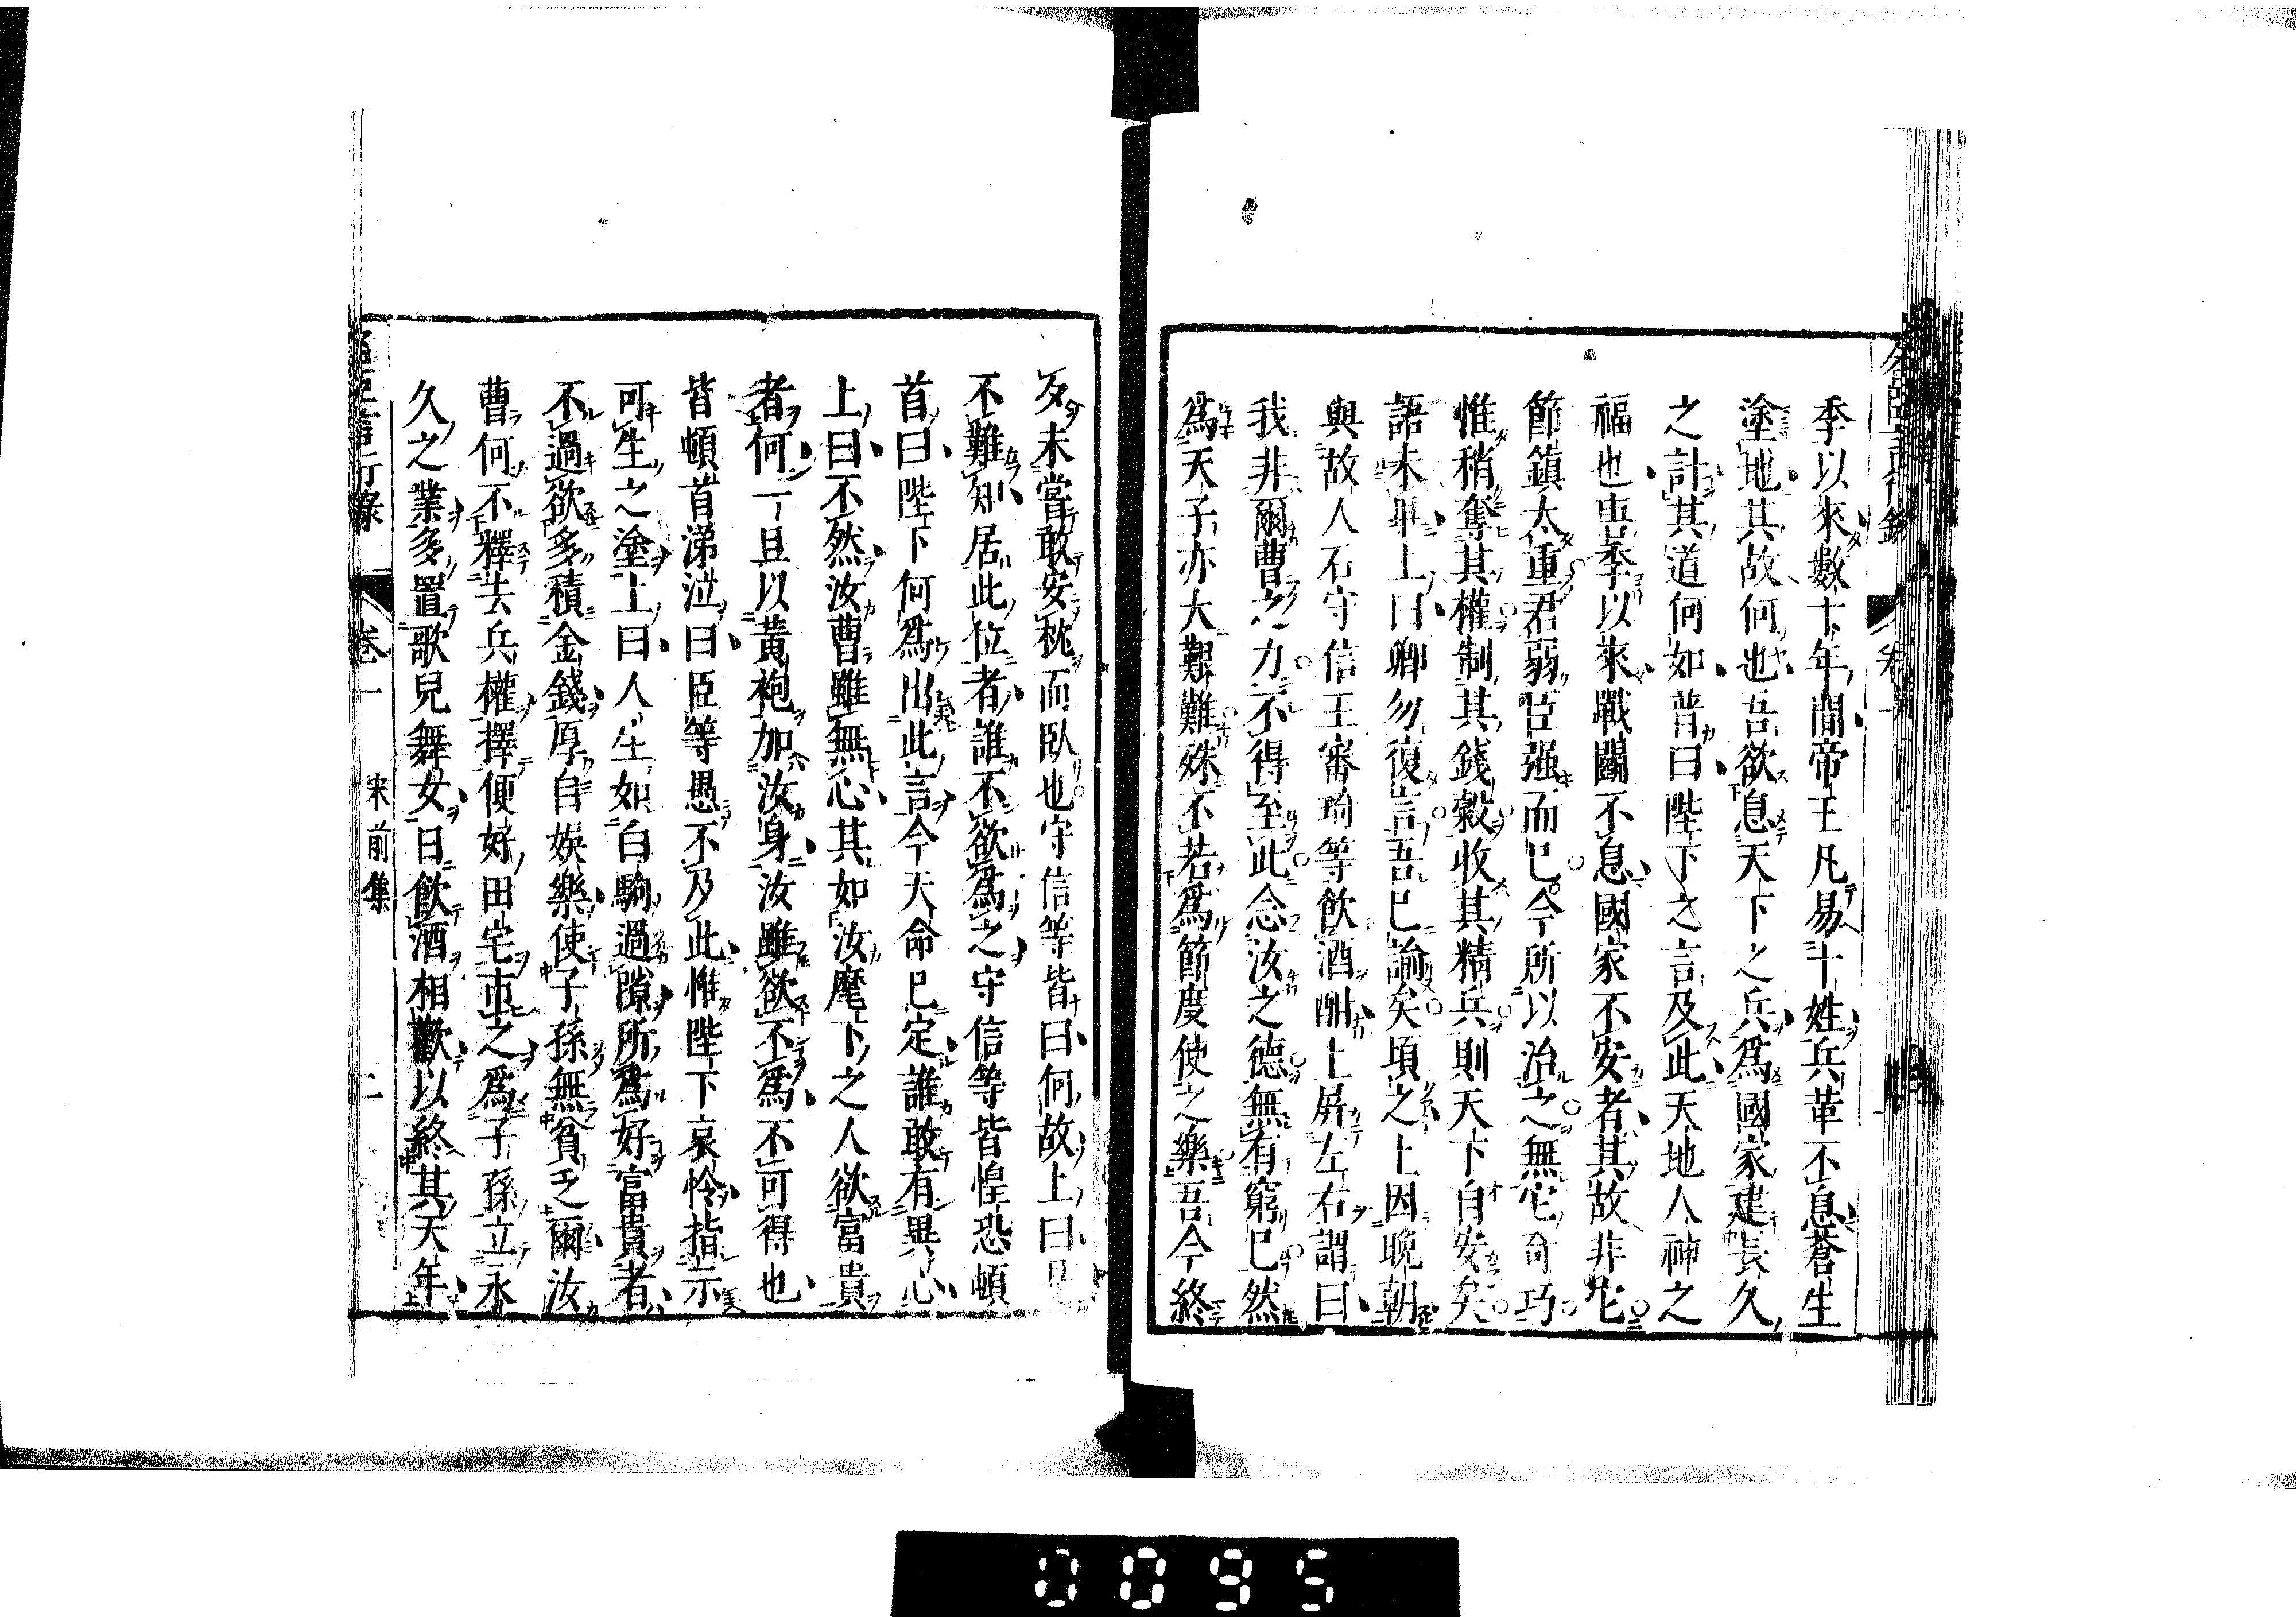 季以來數十年間帝王凡易十姓兵革不息蒼生
塗地其故何也吾欲息天下之兵爲國家建長久
之計其道何如普曰陛下之言及此天地人神之
福也唐季以來戰鬭不息國家不安者其故非它
節鎮太重君弱臣强而已今所以治之無它奇巧
惟稍奪其權制其錢穀收其精兵則天下自安矣
語未畢上曰卿勿復言吾已諭矣頃之上因晚朝
與故人石守信王審琦等飲酒酣上屏左右謂曰
我非爾曹之力不得至此念汝之德無有窮已然
爲天子亦大艱難殊不若爲節度使之樂吾今終
夕未嘗敢安枕而臥也守信等皆曰何故上曰
不難知居此位者誰不欲爲之守信等皆惶恐頓
首曰陛下何爲出此言今天命已定誰敢有異心
上曰不然汝曹雖無心其如汝麾下之人欲富貴
者何一旦以黃袍加汝身汝雖欲不爲不可得也
皆頓首涕泣曰臣等愚不及此惟陛下哀怜指示
可生之塗上曰人生如白駒過隙所爲好富貴者
不過欲多積金錢厚自娛樂使子孫無貧乏爾汝
曹何不釋去兵權擇便好田宅市之爲子孫立永
久之業多置歌兒舞女日飲酒相歡以終其天年
言行錄 卷一 宋前集 二
0095